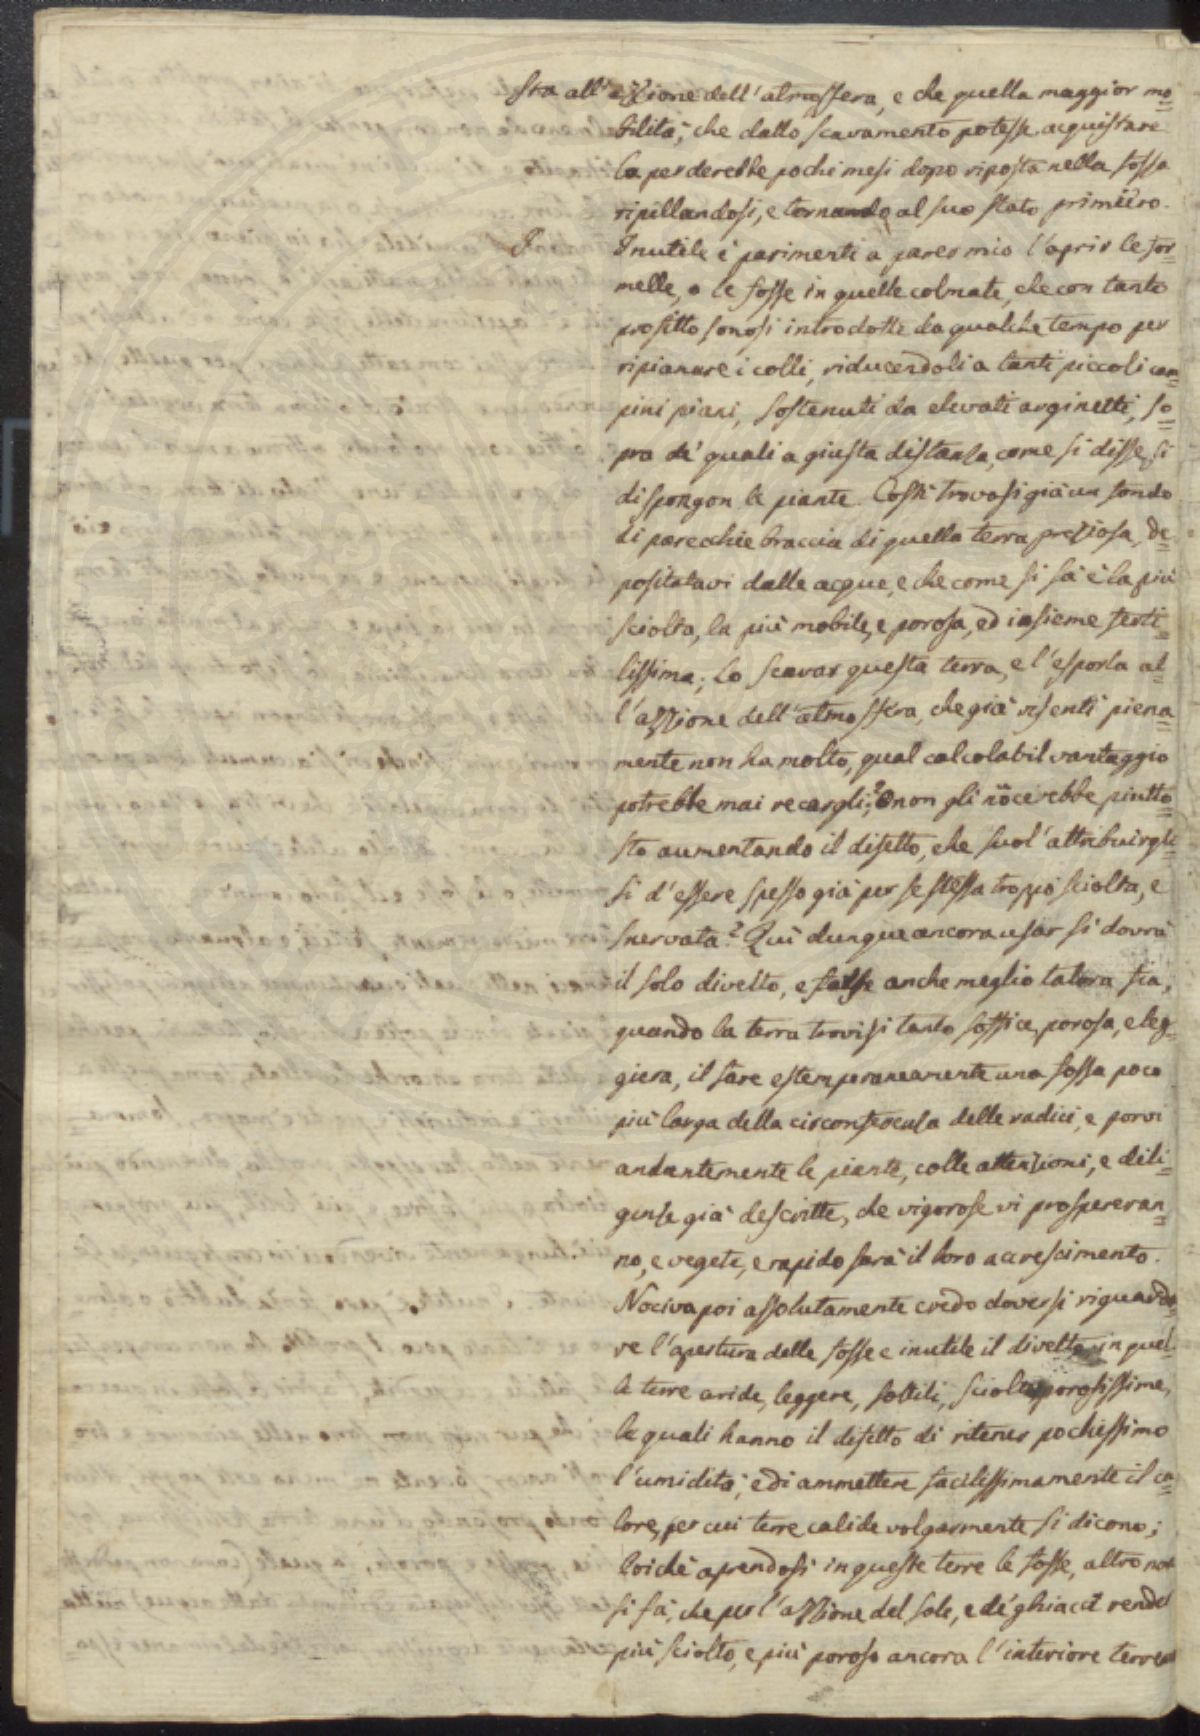 sta all'azzione dell'atmosfera, e che quella maggior mo=
bilità, che dallo scavamento potesse acquistare
la perderebbe pochi mesi dopo riposta nella fossa
ripillandosi, e tornando al suo stato primiero.
Inutile è parimenti a parer mio l'aprir le for=
melle, o le fosse in quelle colmate, che con tanto
profitto sonosi introdotte da qualche tempo per
ripianare i colli, riducendoli a tanti piccoli cam=
pini piani, sostenuti da elevati arginetti, so=
pra de' quali a giusta distanza, come si disse, si
dispongon le piante. Costì trovasi già un fondo
di parecchie braccia di quella terra preziosa, de=
positatavi dalle acque, e che come si sà è la più
sciolta, la più mobile, e porosa, ed insieme ferti=
lissima; Lo scavar questa terra, e l'esporla al=
l'azzione dell'atmosfera, che già risentì piena=
mente non ha molto, qual calcolabil vantaggio
potrebbe mai recargli;? O non gli nocerebbe piutto=
sto aumentando il difetto, che suol'attribuirgli=
si d'essere spesso già per se stessa troppo sciolta, e
snervata? Quì dunque ancora usar si dovrà
il solo divelto, e forse anche meglio talora fia,
quando la terra trovisi tanto soffice, porosa, e leg=
giera, il fare estemporaneamente una fossa poco
più larga della circonferenza delle radici, e porvi
andantemente le piante, colle attenzioni, e dili=
genze già descritte, che vigorose vi prospereran=
no, e vegete, e rapido sarà il loro accrescimento.
Nociva poi assolutamente credo doversi riguarda=
re l'apertura delle fosse e inutile il divelto in quel=
le terre aride, leggere, sottili, sciolte, porosissime,
le quali hanno il difetto di ritener pochissimo
l'umidità, e di ammettere facilissimamente il ca=
lore, per cui terre calide volgarmente si dicono;
Poichè aprendosi in queste terre le fosse, altro non
si fà, che per l'azzione del sole, e de' ghiacci render
più sciolto, e più poroso ancora l'interiore terreno